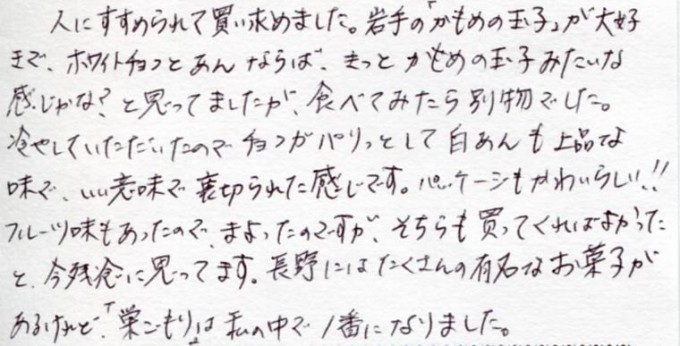 人にすすめられて買い求めました。岩手の「かもめの玉子」が大好
きで、ホワイトチョコとあんならば、きっとかもめの玉子みたいな
感じかな？と思ってましたが、食べてみたら別物でした。
冷やしていただいたのでチョコがパリッとして白あんも上品な
味で、いい意味で裏切られた感じです。パッケージもかわいらしい!!
フルーツ味もあったので、まよったのですが、そちらも買ってくればよかった
と、今残念に思ってます。長野にはたくさんの有名なお菓子が
あるけれど、「巣ごもり」は私の中で1番になりました。